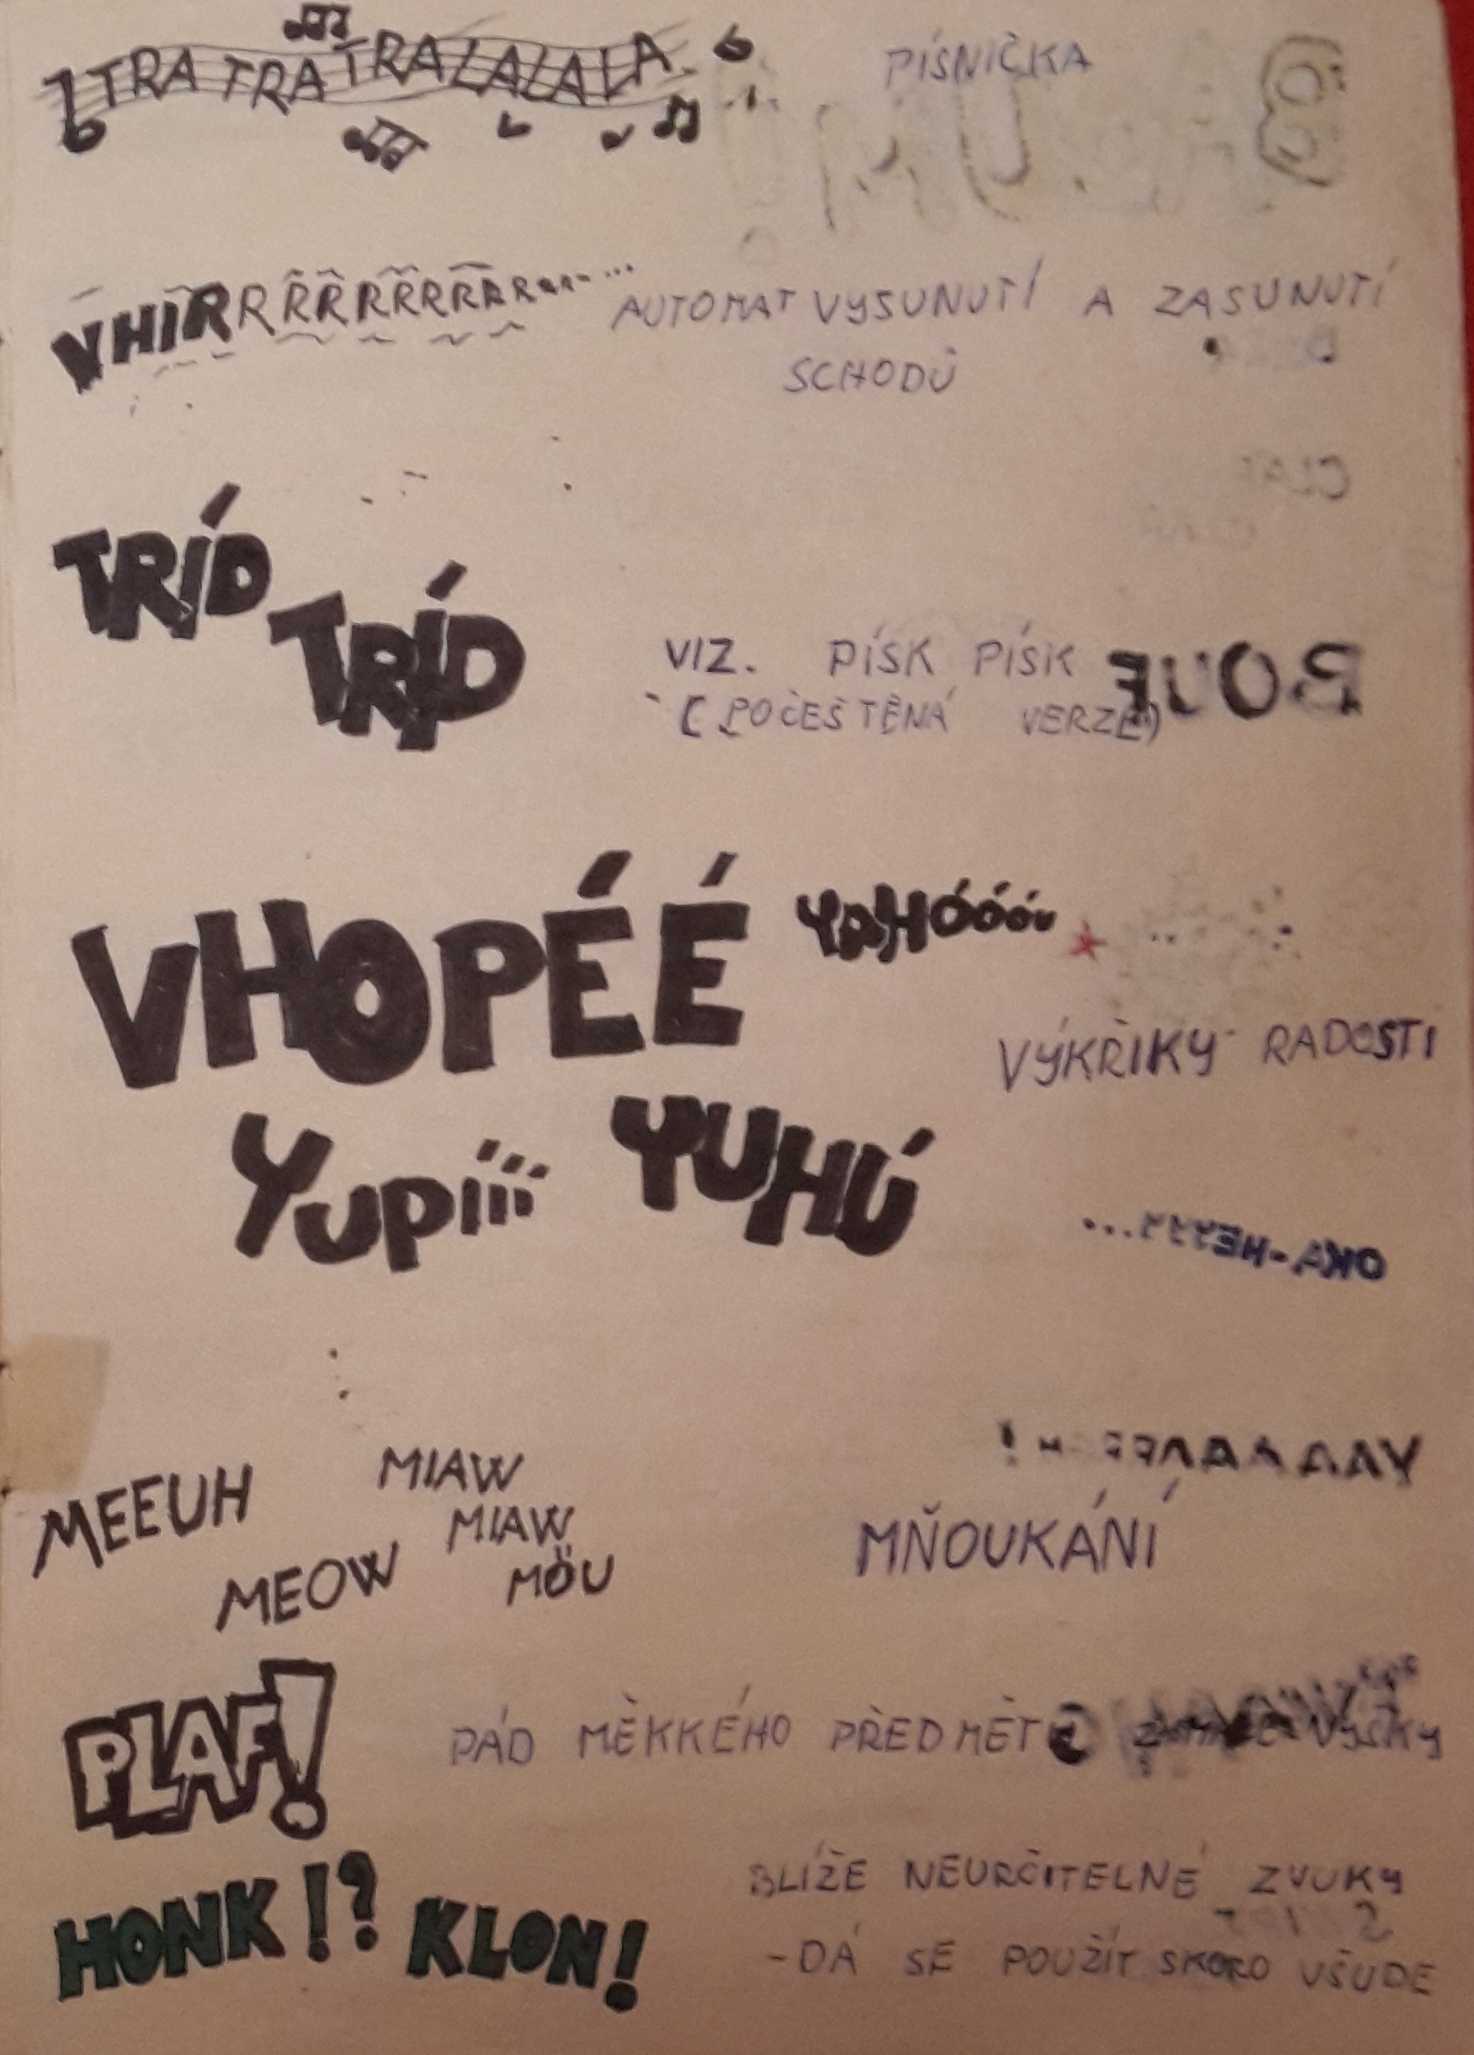 TRA TRA TRALALALA
PÍSNIČKA
VHIRRRRRRRRRRRRR...
AUTOMAT VYSUNUTÍ A ZASUNUTÍ
SCHODŮ
TRÍD
TRÍD
VIZ. PÍSK PÍSK
(POČEŠTĚNÁ VERZE)
VHOPÉÉ YAHÓÓÓU
VÝKŘIKY RADOSTI
YUPÍÍÍ YUHÚ
MEEUH MIAW
MIAW
MEOW MÖU
MŇOUKÁNÍ
PLAF!
PÁD MĚKKÉHO PŘEDMĚTU VÝŠKY
HONK!? KLON!
BLÍŽE NEURČITELNÉ ZVUKY
- DÁ SE POUŽÍT SKORO VŠUDE